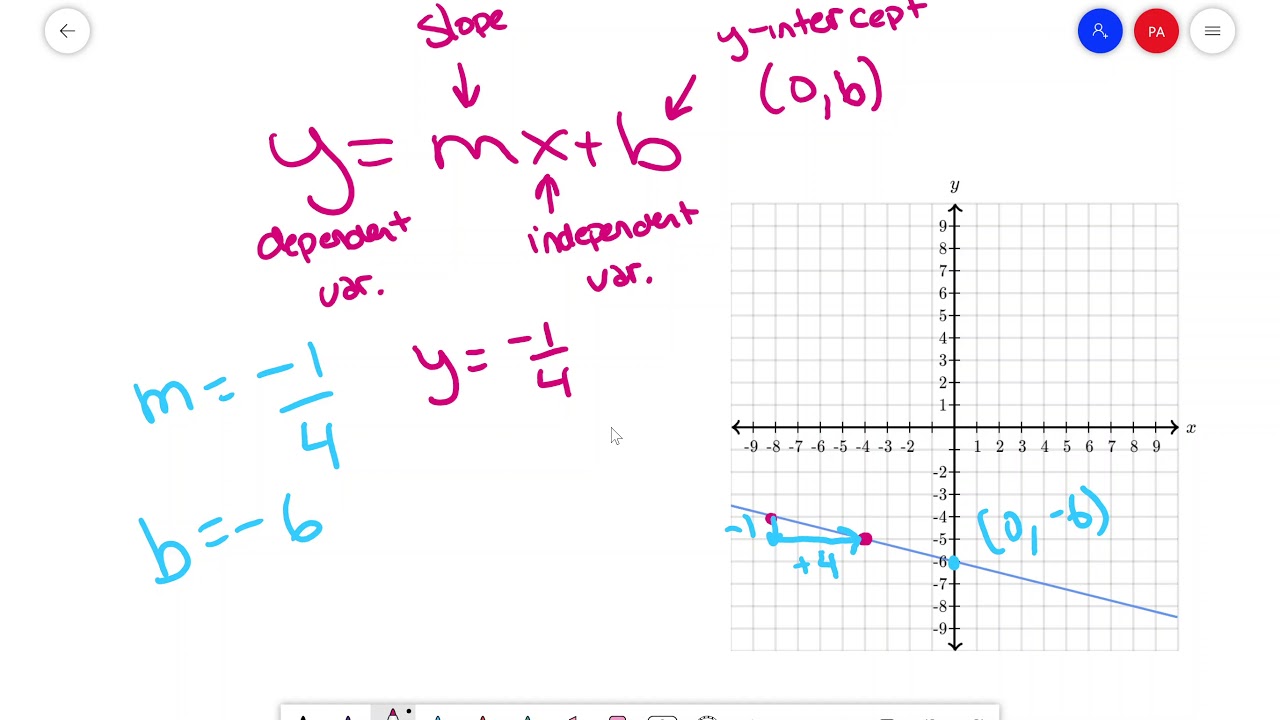 slope
y-intercept
(0,b)
PA
y = mx + b
dependent
var.
independent
var.
m = -1/4
y = -1/4
b = -6
y
9
8
7
6
5
4
3
2
1
-9 -8 -7 -6 -5 -4 -3 -2 1 2 3 4 5 6 7 8 9 x
-2
-3
-4
-5
-6
-7
-8
-9
-1
+4
(0, -6)